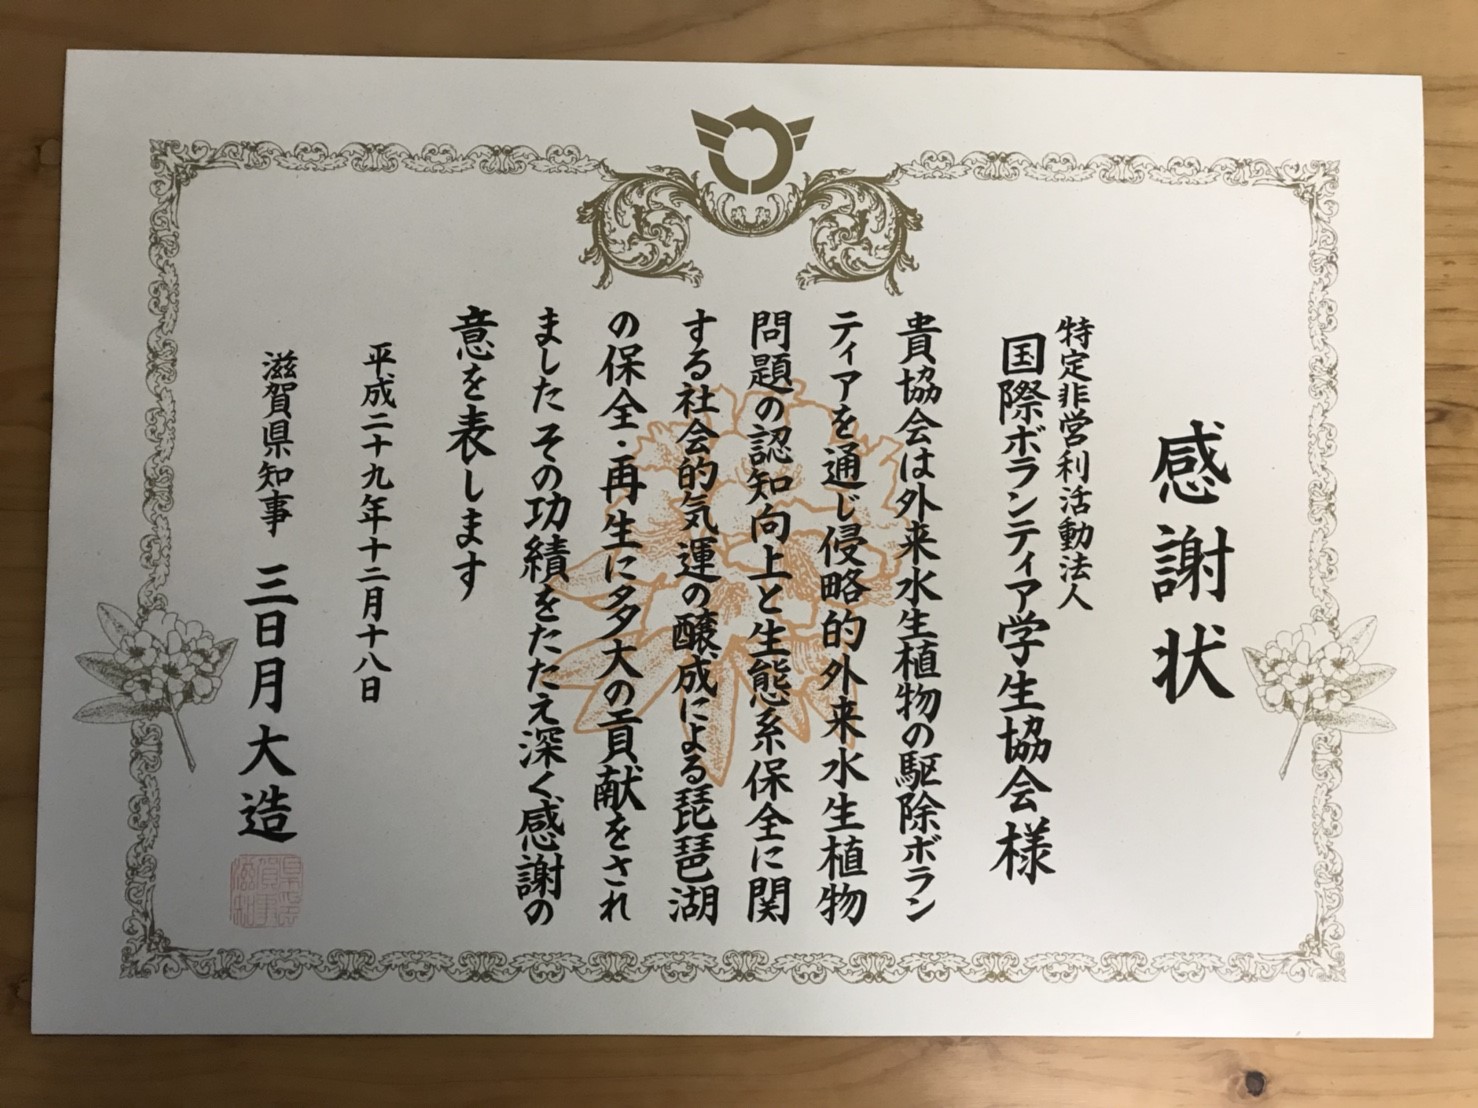 感謝状
特定非営利活動法人
国際ボランティア学生協会様
貴協会は外来水生植物の駆除ボラン
ティアを通じ侵略的外来水生植物
問題の認知向上と生態系保全に関
する社会的気運の醸成による琵琶湖
の保全・再生に多大の貢献をされ
ましたその功績をたたえ深く感謝の
意を表します
平成二十九年十二月十八日
滋賀県知事 三日月大造